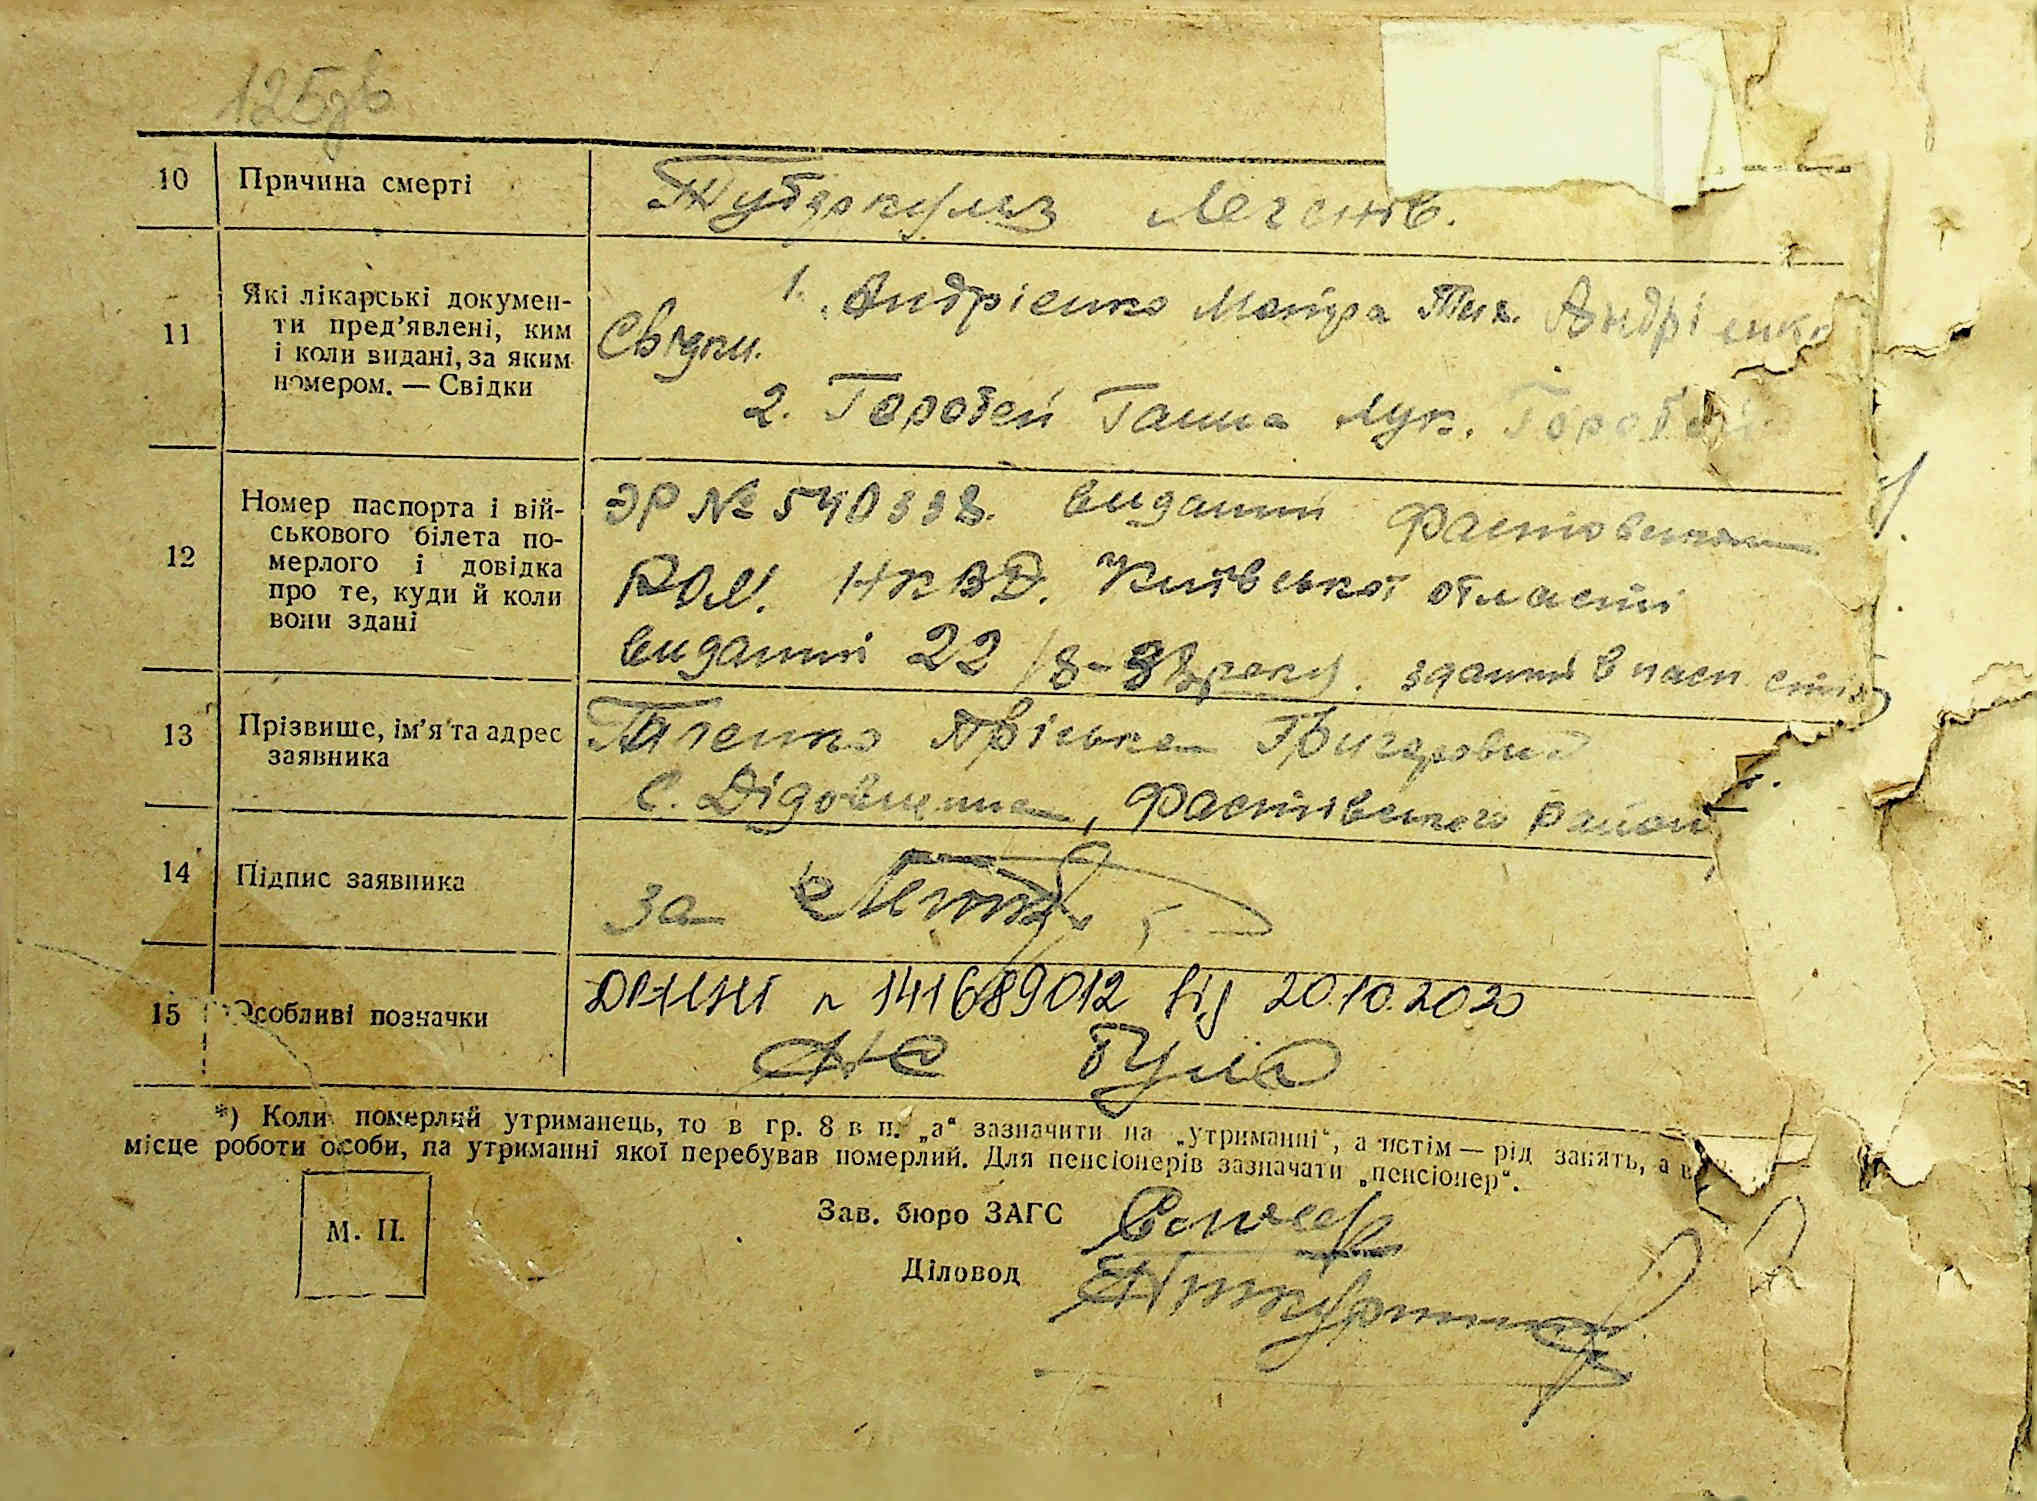 125зв
10 Причина смерті Туберкульз Легенів.
11 Які лікарські докумен-
ти пред'явлені, ким
і коли видані, за яким
номером. — Свідки
Свідки.
1. Андрієнко Мотря Тих. Андрієнко
2. Горобей Ганна Лук. Горобей
12 Номер паспорта і вій-
ськового білета по-
мерлого і довідка
про те, куди й коли
вони здані
ЭР № 540338. виданий Фастовским
РОМ. НКВД. Київської області
виданий 22/8-38 року. зданий в пасп стіл
13 Прізвище, ім'я та адрес
заявника
Григорович
с. Дідовщина, Фастівського району
14 Підпис заявника за
15 Особливі позначки
ДРАЦСГ n 141689012 від 20.10.2020
*) Коли померлий утриманець, то в гр. 8 в п. „а“ зазначити на „утриманні“, а потім — рід занять, а в
місце роботи особи, на утриманні якої перебував померлий. Для пенсіонерів зазначати „пенсіонер“.
М. П.
Зав. бюро ЗАГС
Діловод